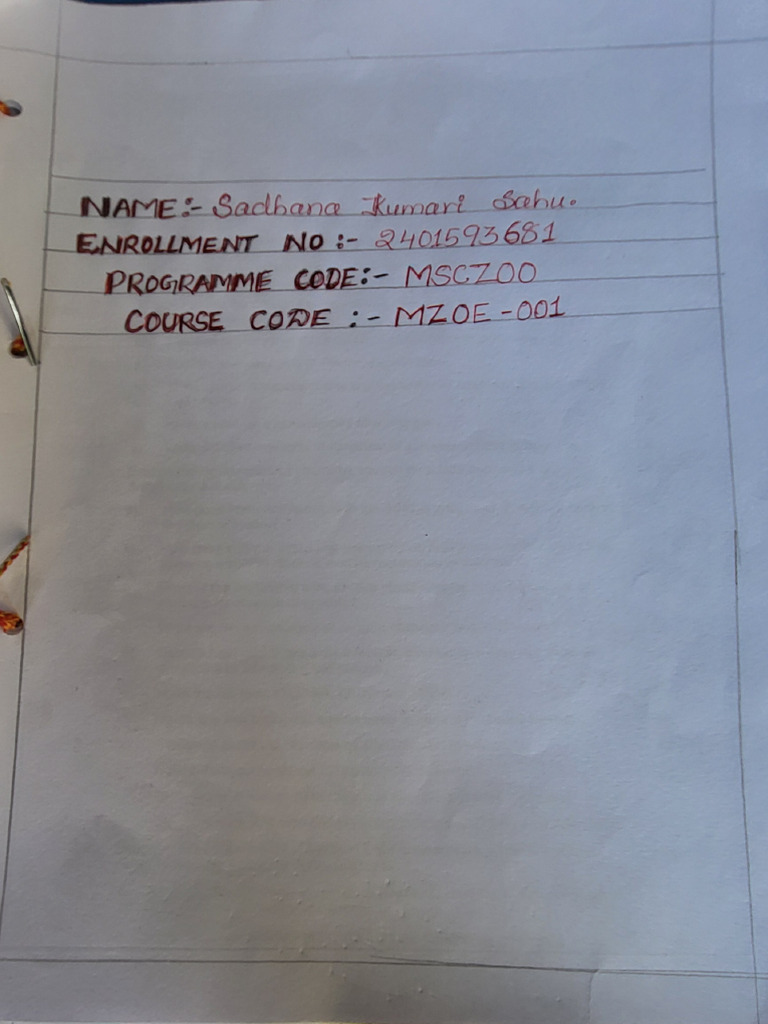 NAME:- Sadhana Kumari Sahu.
ENROLLMENT NO :- 2401593681
PROGRAMME CODE:- MSCZOO
COURSE CODE :- MZOE-001